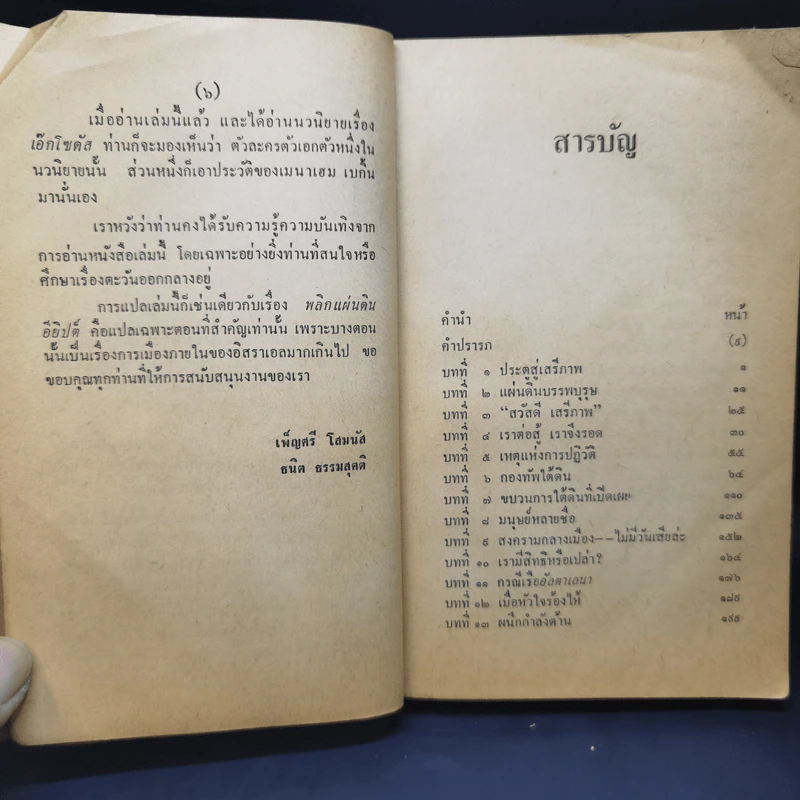 (๖)
เมื่ออ่านเล่มนี้แล้ว และได้อ่านนวนิยายเรื่อง
เอ็กโซดัส ท่านก็จะมองเห็นว่า ตัวละครตัวเอกตัวหนึ่งใน
นวนิยายนั้น ส่วนหนึ่งก็เอาประวัติของเมนาเฮม เบกิ้น
มานั่นเอง
เราหวังว่าท่านคงได้รับความรู้ความบันเทิงจาก
การอ่านหนังสือเล่มนี้ โดยเฉพาะอย่างยิ่งท่านที่สนใจหรือ
ศึกษาเรื่องตะวันออกกลางอยู่
การแปลเล่มนี้ก็เช่นเดียวกับเรื่อง พลิกแผ่นดิน
อียิปต์ คือแปลเฉพาะตอนที่สำคัญเท่านั้น เพราะบางตอน
นั้นเป็นเรื่องการเมืองภายในของอิสราเอลมากเกินไป ขอ
ขอบคุณทุกท่านที่ให้การสนับสนุนงานของเรา
เพ็ญศรี โสมนัส
ธนิต ธรรมสุคติ
สารบัญ
คำนำ หน้า
คำปรารภ (๕)
บทที่ ๑ ประตูสู่เสรีภาพ ๑
บทที่ ๒ แผ่นดินบรรพบุรุษ ๑๑
บทที่ ๓ “สวัสดี เสรีภาพ” ๒๕
บทที่ ๔ เราต่อสู้ เราจึงรอด ๓๐
บทที่ ๕ เหตุแห่งการปฏิวัติ ๕๕
บทที่ ๖ กองทัพใต้ดิน ๖๔
บทที่ ๗ ขบวนการใต้ดินที่เปิดเผย ๑๑๐
บทที่ ๘ มนุษย์หลายชื่อ ๑๓๕
บทที่ ๙ สงครามกลางเมือง--ไม่มีวันเสียล่ะ ๑๕๒
บทที่ ๑๐ เรามีสิทธิหรือเปล่า? ๑๖๔
บทที่ ๑๑ กรณีเรืออัลตาเลนา ๑๗๖
บทที่ ๑๒ เมื่อหัวใจร้องไห้ ๑๘๙
บทที่ ๑๓ ผนึกกำลังต้าน ๑๙๕